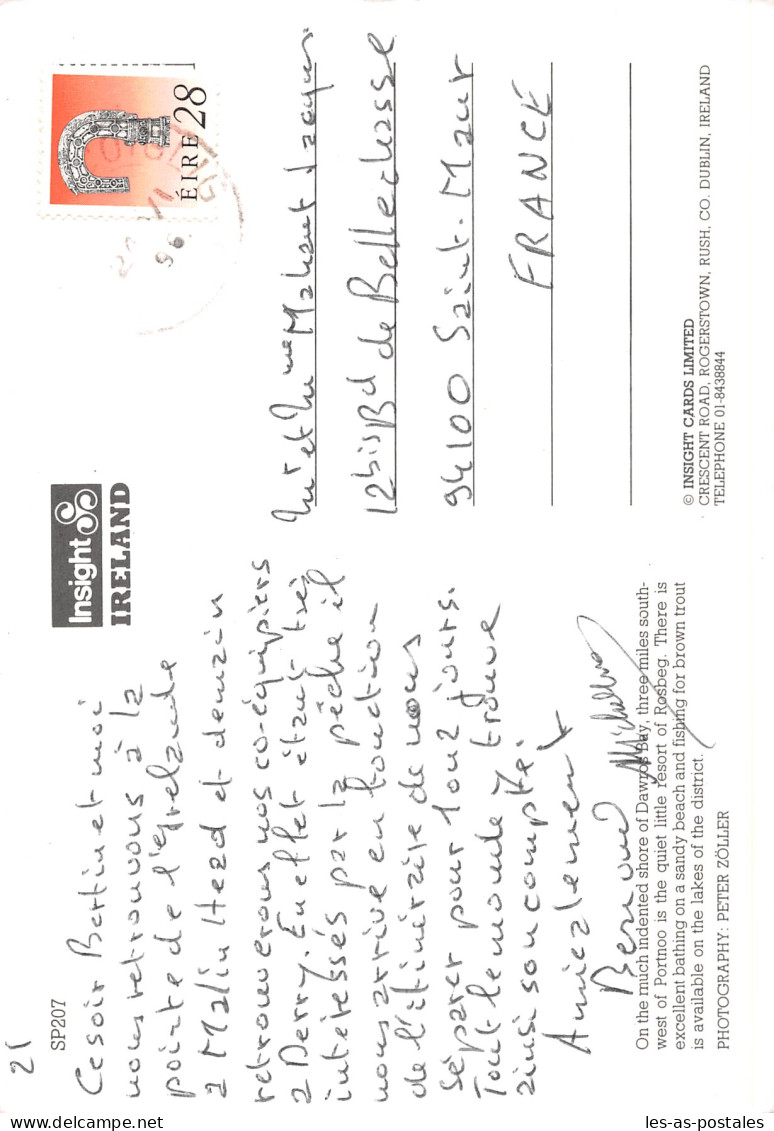 21
SP207
Ce soir Bertin et moi
nous retrouvons à la
pointe de l'Irelande
à Malin Head et demain
retrouverons nos co-équipiers
à Derry. En effet étant très
intéressés par la pêche il
nous arrive en fonction
de l'itinéraire de nous
séparer pour 1 ou 2 jours.
Tout le monde y trouve
ainsi son compte.
Amicalement
On the much indented shore of Dawros Bay, three miles south-
west of Portnoo is the quiet little resort of Rosbeg. There is
excellent bathing on a sandy beach and fishing for brown trout
is available on the lakes of the district.
PHOTOGRAPHY: PETER ZÖLLER
Insight
IRELAND
ÉIRE 28
96
Mr et Mme Mahaut Jacques
12bis Bd de Bellechasse
94100 Saint-Maur
FRANCE
© INSIGHT CARDS LIMITED
CRESCENT ROAD, ROGERSTOWN, RUSH, CO. DUBLIN, IRELAND
TELEPHONE 01-8438844
les-as-postales